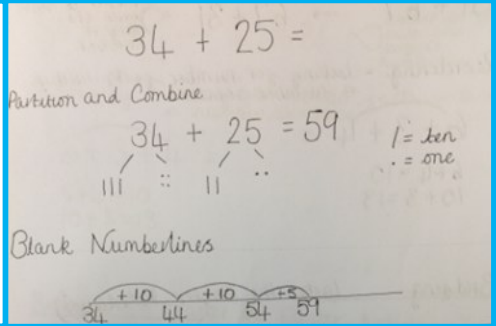 34 + 25 =
Partition and Combine
34 + 25 = 59
/ = ten
. = one
Blank Numberlines
+10 +10 +5
34 44 54 59